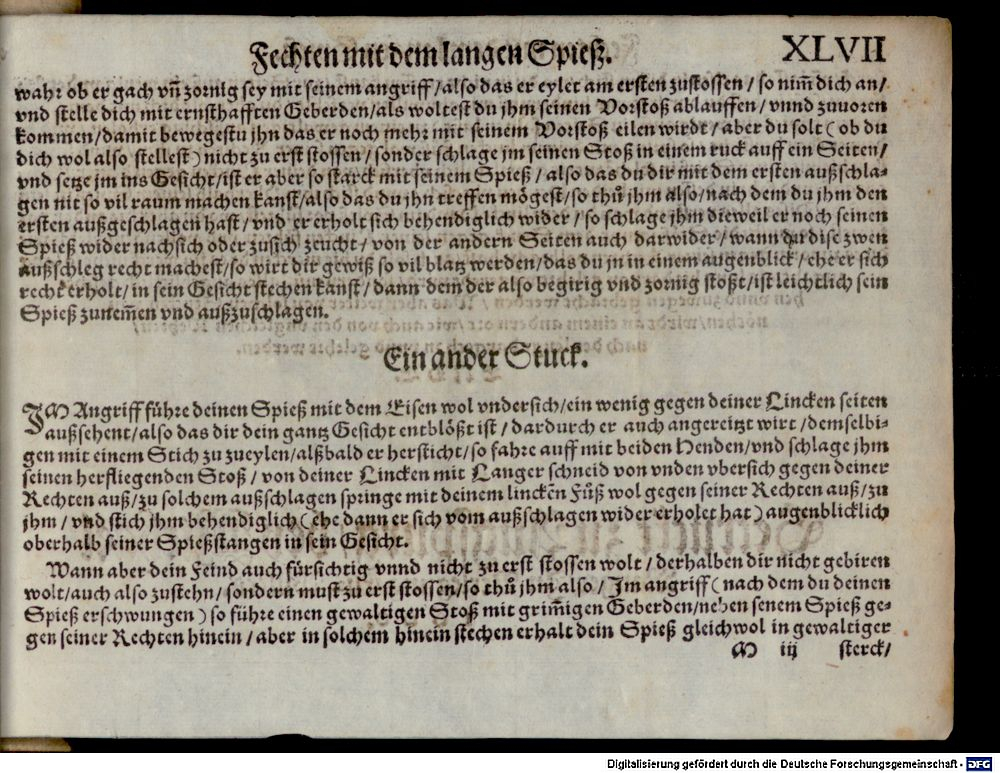 Fechten mit dem langen Spieß. XLVII
wahr ob er gach vn̄ zornig sey mit seinem angriff / also das er eylet am ersten zustossen / so nim̄ dich an /
vnd stelle dich mit ernsthafften Geberden / als woltest du jhm seinen Vorstoß ablauffen / vnnd zuuoren
kommen / damit bewegestu jhn das er noch mehr mit seinem Vorstoß eilen wirdt / aber du solt ( ob du
dich wol also stellest ) nicht zu erst stossen / sonder schlage jm seinen Stoß in einem ruck auff ein Seiten /
vnd setze jm ins Gesicht / ist er aber so starck mit seinem Spieß / also das du dir mit dem ersten außschla-
gen nit so vil raum machen kanst / also das du jhn treffen mögest / so thů jhm also / nach dem du jhm den
ersten außgeschlagen hast / vnd er erholt sich behendiglich wider / so schlage jhm dieweil er noch seinen
Spieß wider nachsich oder zusich zeucht / von der andern Seiten auch darwider / wann du dise zwen
außschleg recht machest / so wirt dir gewiß so vil blatz werden / das du jn in einem augenblick / ehe er sich
recht erholt / in sein Gesicht stechen kanst / dann dem der also begirig vnd zornig stoßt / ist leichtlich sein
Spieß zunem̄en vnd außzuschlagen.
Ein ander Stuck.
IM Angriff führe deinen Spieß mit dem Eisen wol vndersich / ein wenig gegen deiner Lincken seiten
außsehent / also das dir dein gantz Gesicht entblößt ist / dardurch er auch angereitzt wirt / demselbi-
gen mit einem Stich zu zueylen / alßbald er hersticht / so fahre auff mit beiden Henden / vnd schlage jhm
seinen herfliegenden Stoß / von deiner Lincken mit Langer schneid von vnden vbersich gegen deiner
Rechten auß / zu solchem außschlagen springe mit deinem linckēn Fůß wol gegen seiner Rechten auß / zu
jhm / vnd stich jhm behendiglich ( ehe dann er sich vom außschlagen wider erholet hat ) augenblicklich
oberhalb seiner Spießstangen in sein Gesicht.
Wann aber dein Feind auch fürsichtig vnnd nicht zu erst stossen wolt / derhalben dir nicht gebiren
wolt / auch also zustehn / sondern must zu erst stossen / so thů jhm also / Im angriff ( nach dem du deinen
Spieß erschwungen ) so führe einen gewaltigen Stoß mit grim̄igen Geberden / neben senem Spieß ge-
gen seiner Rechten hinein / aber in solchem hinein stechen erhalt dein Spieß gleichwol in gewaltiger
M iij sterck /
Digitalisierung gefördert durch die Deutsche Forschungsgemeinschaft - DFG